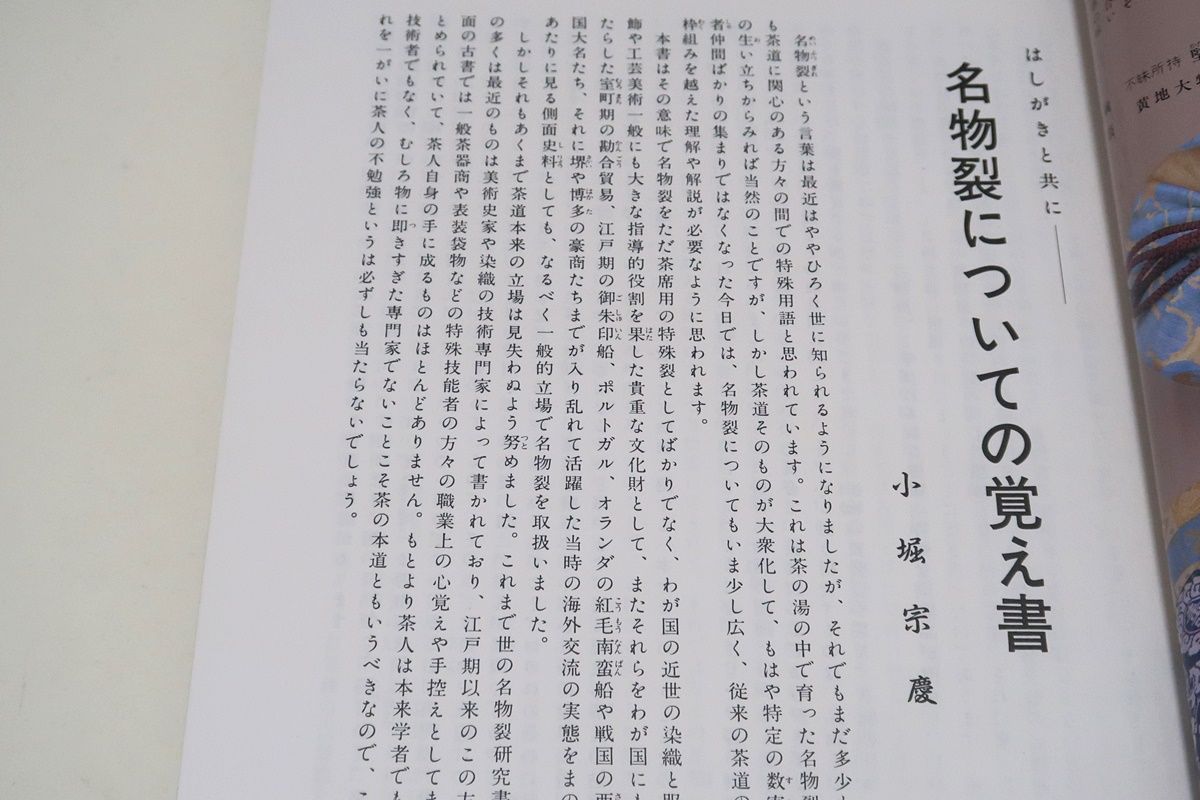 はしがきと共に――
名物裂についての覚え書
小堀宗慶
名物裂という言葉は最近はややひろく世に知られるようになりましたが、それでもまだ多少
も茶道に関心のある方々の間での特殊用語と思われています。これは茶の湯の中で育った名物裂
の生い立ちからみれば当然のことですが、しかし茶道そのものが大衆化して、もはや特定の数寄
者仲間ばかりの集まりではなくなった今日では、名物裂についてもいま少し広く、従来の茶道の
枠組みを越えた理解や解説が必要なように思われます。
本書はその意味で名物裂をただ茶席用の特殊裂としてばかりでなく、わが国の近世の染織と服
飾や工芸美術一般にも大きな指導的役割を果した貴重な文化財として、またそれらをわが国にも
たらした室町期の勘合貿易、江戸期の御朱印船、ポルトガル、オランダの紅毛南蛮船や戦国の西
国大名たち、それに堺や博多の豪商たちまでが入り乱れて活躍した当時の海外交流の実態をまの
あたりに見る側面史料としても、なるべく一般的立場で名物裂を取扱いました。
しかしそれもあくまで茶道本来の立場は見失わぬよう努めました。これまで世の名物裂研究書
の多くは最近のものは美術史家や染織の技術専門家によって書かれており、江戸期以来のこの方
面の古書では一般茶器商や表装袋物などの特殊技能者の方々の職業上の心覚えや手控えとしてま
とめられていて、茶人自身の手に成るものはほとんどありません。もとより茶人は本来学者でも
技術者でもなく、むしろ物に即きすぎた専門家でないことこそ茶の本道ともいうべきなので、こ
れを一がいに茶人の不勉強というは必ずしも当たらないでしょう。
不昧所持
黄地大